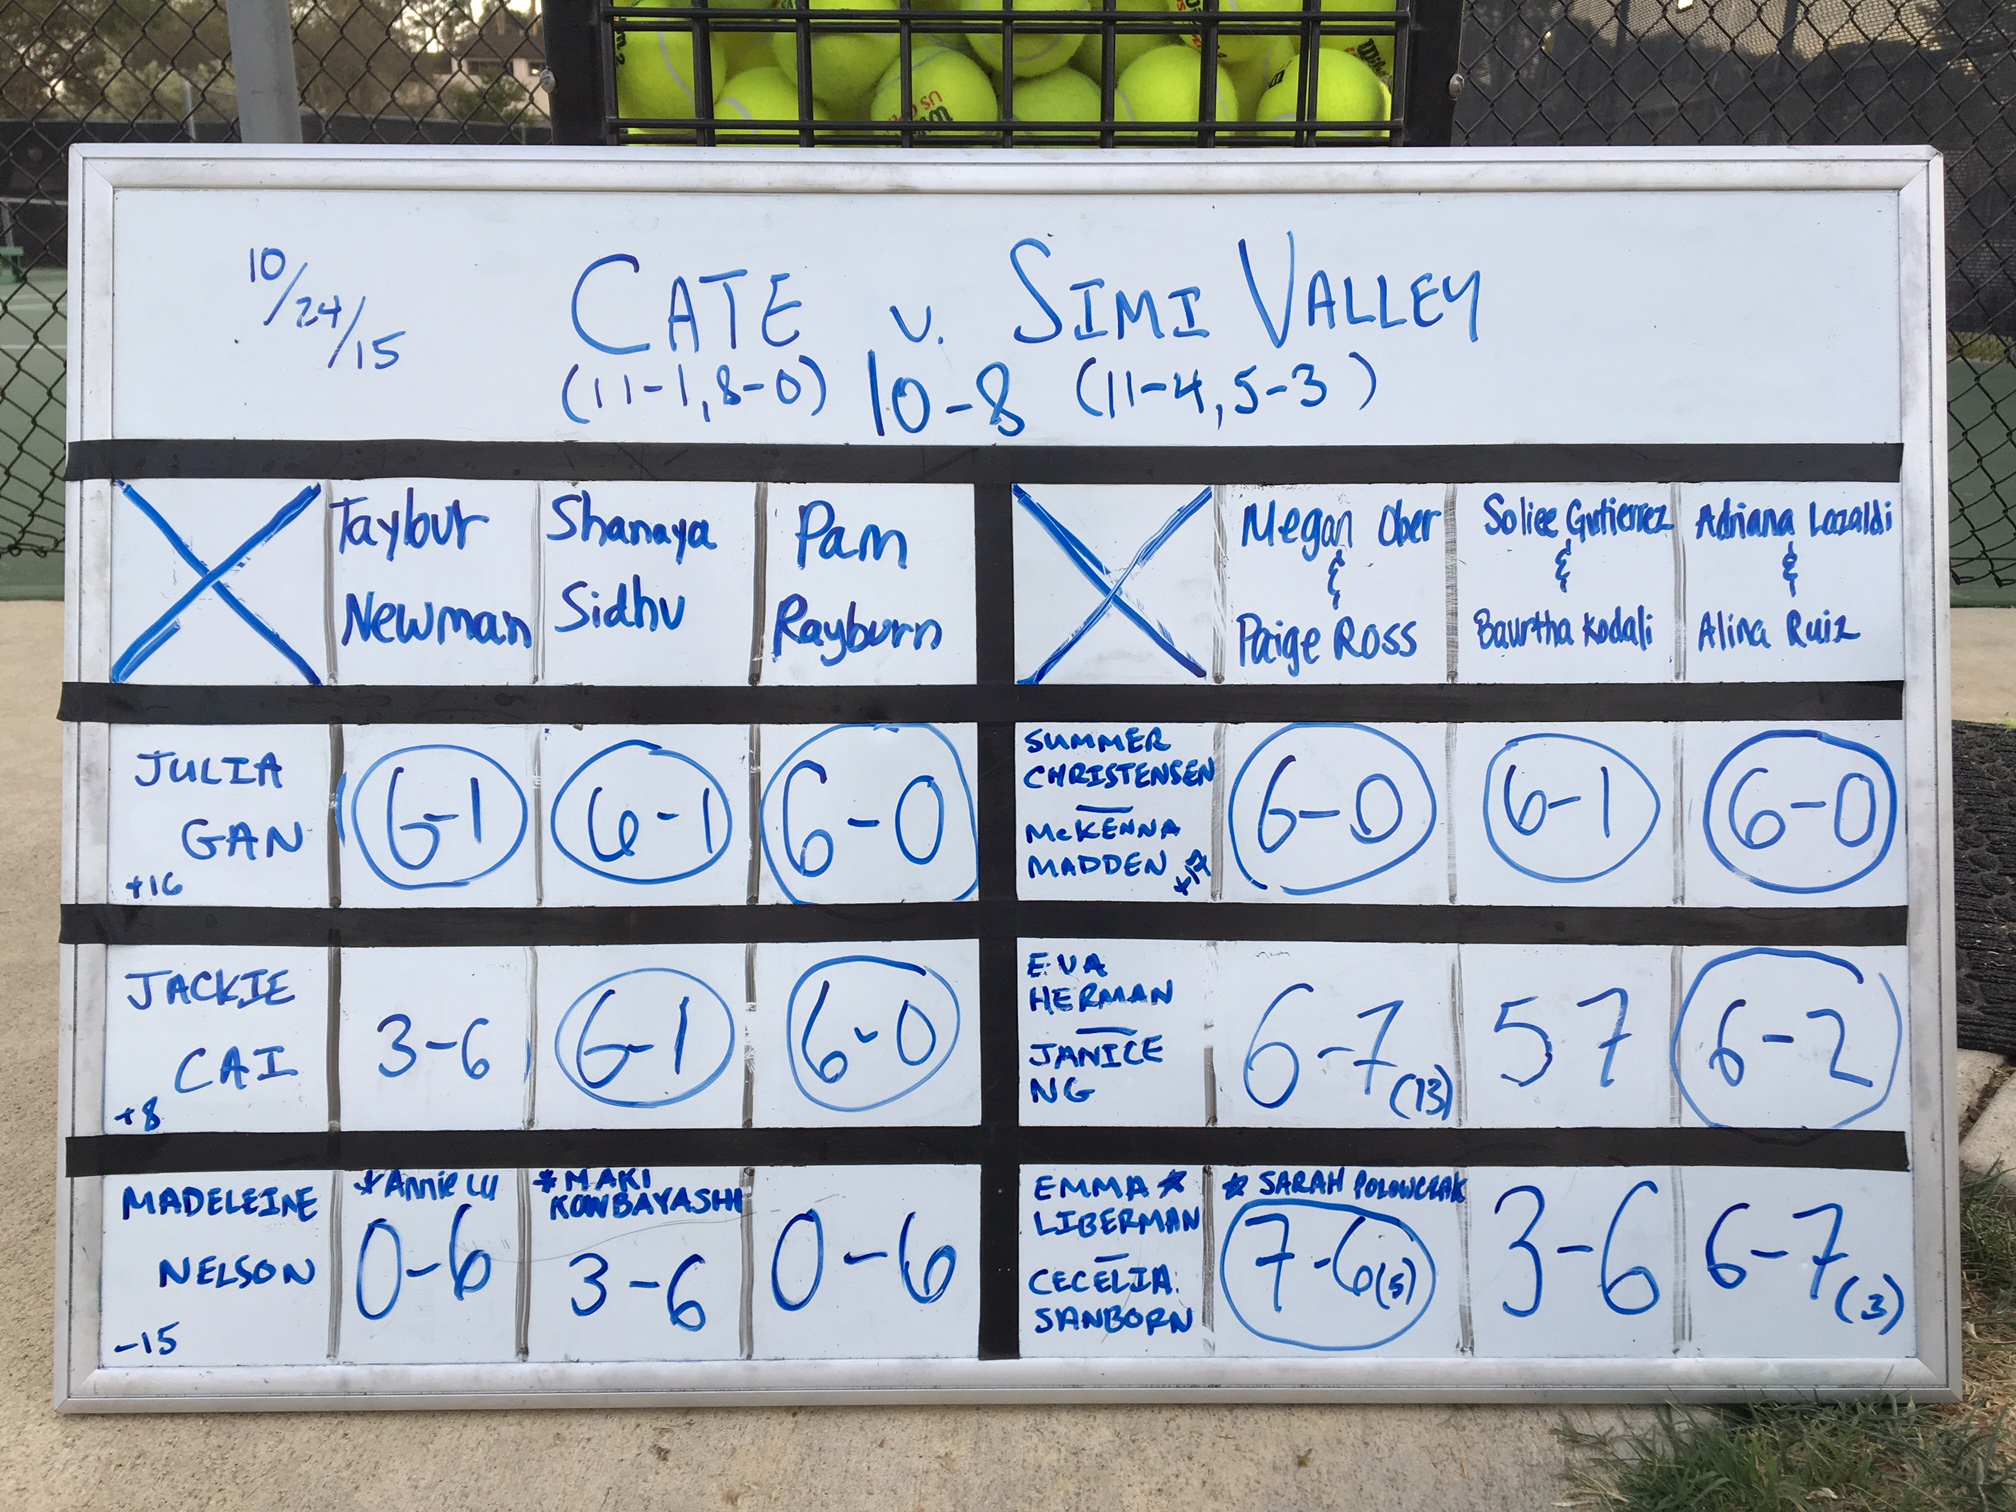 10/24/15
CATE v. SIMI VALLEY
(11-1, 8-0) 10-8 (11-4, 5-3)
Taylour
Newman
Shanaya
Sidhu
Pam
Rayburn
Megan Ober
&
Paige Ross
Soliee Gutierrez
&
Baurtha Kodali
Adriana Lazaldi
&
Alina Ruiz
JULIA
GAN
+16
6-1
6-1
6-0
SUMMER
CHRISTENSEN
—
McKENNA
MADDEN +17
6-0
6-1
6-0
JACKIE
CAI
+8
3-6
6-1
6-0
EVA
HERMAN
—
JANICE
NG
6-7 (13)
5 7
6-2
MADELEINE
NELSON
-15
*Annie Lu
0-6
*MAKI
KOWBAYASHI
3-6
0-6
EMMA *
LIBERMAN
—
CECELIA
SANBORN
* SARAH POLOWCZAK
7-6 (5)
3-6
6-7 (3)
Wilson
US